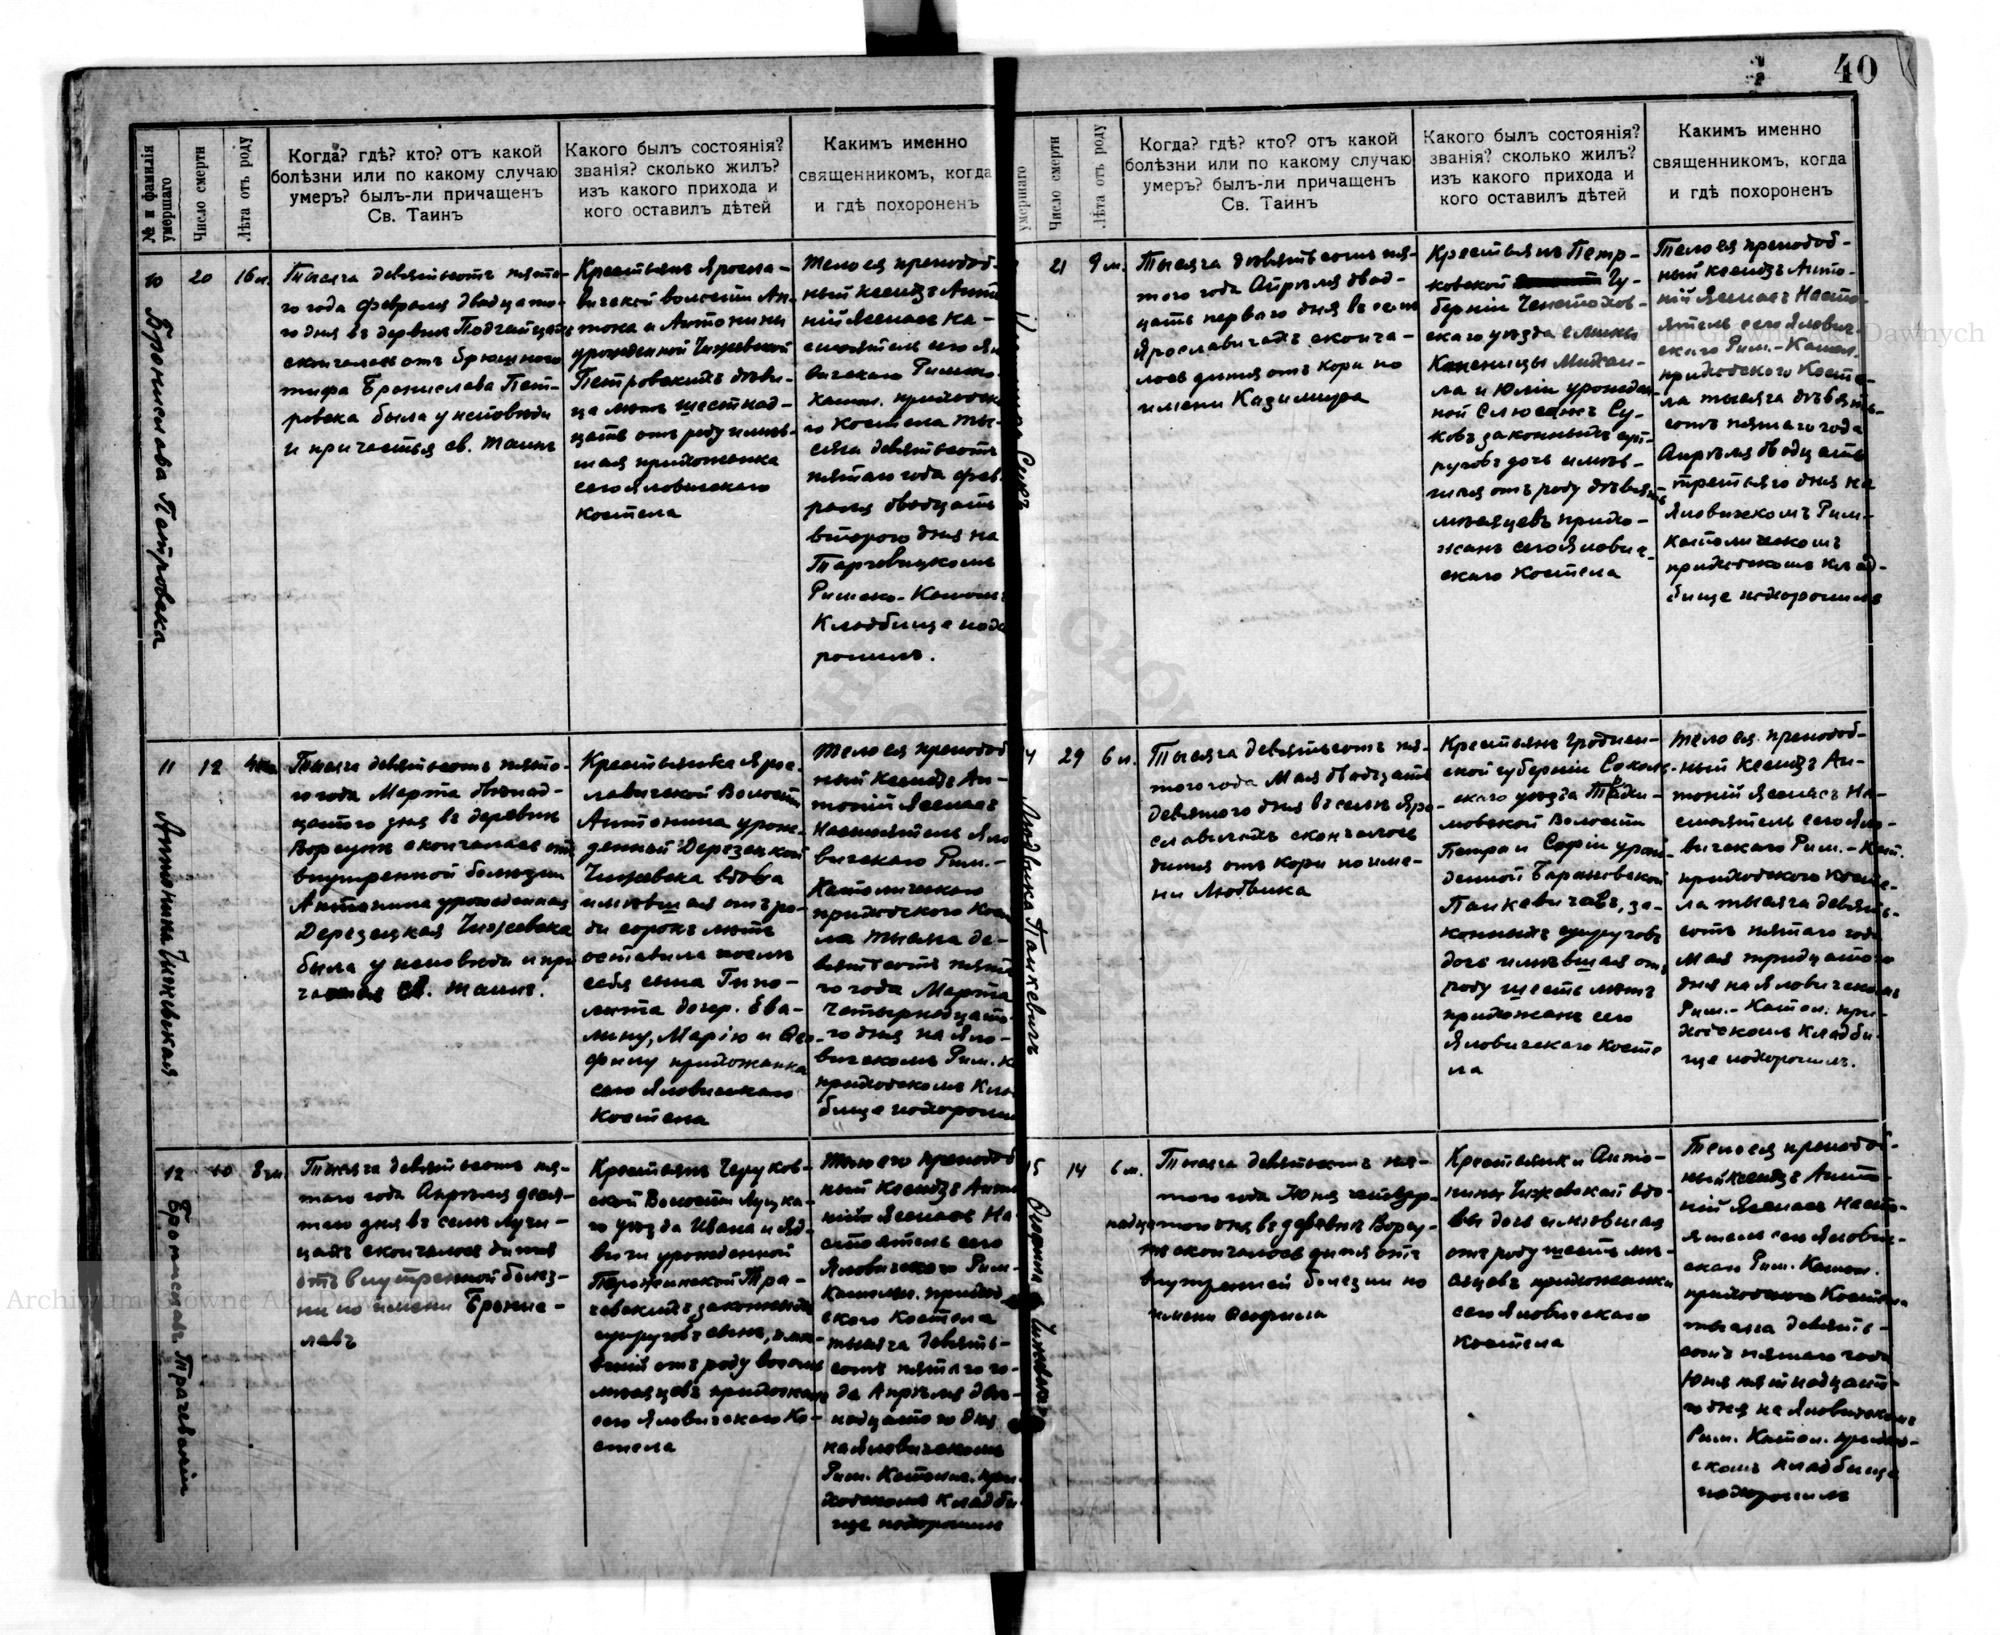 40
№ и фамилія умершаго
Число смерти
Лѣта отъ роду
Когда? гдѣ? кто? отъ какой
болѣзни или по какому случаю
умеръ? былъ-ли причащенъ
Св. Таинъ
Какого былъ состоянія?
званія? сколько жилъ?
изъ какого прихода и
кого оставилъ дѣтей
Какимъ именно
священникомъ, когда
и гдѣ похороненъ
10
Бронислава Петровска
20
16 л.
Тысяча девятьсотъ пято-
го года февраля двадцато-
го дня въ деревнѣ Подгайцахъ
скончалась отъ брюшного
тифа Бронислава Пет-
ровска была у исповѣди
и причастья св. Таинъ
Крестьянъ Яросла-
вичской волости Ан-
тона и Антонины
урожденной Чижевской
Петровскихъ дѣви-
ца лѣтъ шестнад-
цать отъ роду имѣв-
шая прихожанка
сего Яловичскаго
Костела
Тело ея преподоб-
ный ксендзъ Анто
ній Ясенасъ На-
стоятель сего Ял
вичскаго Римско-
катол. приходск
го Костела ты-
сяча девятьсотъ
пятаго года фев-
раля двадцать
второго дня на
Торговицкомъ
Римско-Катол.
Кладбище похо
ронилъ.
11
Антонина Чижевская
12
Тысяча девятьсотъ пято-
го года Марта двѣнад-
цатого дня въ деревнѣ
Ворсунѣ скончалась отъ
внутренной болезни
Антонина урожденная
Дерезецкая Чижевска
была у исповѣди и при
частья Св. Таинъ.
Крестьянка Ярос-
лавичской Волости
Антонина урож-
денной Дерезецкой
Чижевска вдова
имѣвшая отъ ро-
ду сорокъ лѣтъ
оставила послѣ
себя сына Гипо-
лита дочер. Эве-
лину, Марію и Ѳео-
филу прихожанка
сего Яловичскаго
Костела
Тело ея преподоб
ный Ксендзъ Ан-
тоній Ясенасъ
Настоятель Яло
вичскаго Рим.-
Католическаго
приходского Кост
ла тысяча де-
вятьсотъ пят
го года Марта
четырнадцато-
го дня на Яло-
вичскомъ Рим. К
приходскомъ Клад
бище похорони
12
Брониславъ Трачевскій
10
8 м.
Тысяча девятьсотъ пя-
таго года Апрѣля деся-
таго дня въ селѣ Лучи-
цахъ скончалось дитя
отъ внутренной болез-
ни по имени Брони-
лавъ
Крестьянъ Чаруков-
ской Волости Луцка-
го уѣзда Ивана и Яд-
виги урожденной
Тра-
чевскихъ законныхъ
супруговъ сынъ, имѣ-
вшій отъ роду восемь
мѣсяцевъ прихожанъ
сего Яловичскаго Ко-
стела
Тѣло его преподоб
ный Ксендзъ Анто
ній Ясенасъ На-
стоятель сего
Яловичскаго Рим-
Католич. приход
ского Костела
тысяча девять-
сотъ пятаго го-
да Апрѣля двѣ-
надцатого дня
на Яловичскомъ
Рим. Католич. при
ходскомъ кладби
ще похоронилъ
умершаго
Число смерти
Лѣта отъ роду
Когда? гдѣ? кто? отъ какой
болѣзни или по какому случаю
умеръ? былъ-ли причащенъ
Св. Таинъ
Какого былъ состоянія?
званія? сколько жилъ?
изъ какого прихода и
кого оставилъ дѣтей
Какимъ именно
священникомъ, когда
и гдѣ похороненъ
21
9 м.
Тысяча девятьсотъ пя-
того года Апрѣля двад-
цать перваго дня въ селѣ
Ярославичахъ сконча-
лось дитя отъ кори по
имени Казимира
Крестьянъ Петр-
ковской Гу-
берніи Ченстохов-
скаго уѣзда гмины
Каменицы Михаи-
ла и Юліи урожден-
ной Слюсанъ Су-
ковъ законныхъ суп-
руговъ дочь имѣв-
шая отъ роду девять
мѣсяцевъ прихо-
жанъ сего Ялович-
скаго Костела
Тело ея преподоб-
ный ксендзъ Анто-
ній Ясенасъ Насто-
ятель сего Ялович-
скаго Рим.-Катол.
приходского Косте-
ла тысяча девять-
сотъ пятаго года
Апрѣля двадцать
третьяго дня на
Яловичскомъ Рим-
католическомъ
приходскомъ клад-
бище похоронилъ
Людвика Панкевичъ
29
6 л.
Тысяча девятьсотъ пя-
того года Мая двадцать
девятого дня въ селѣ Яро-
славичахъ скончалось
дитя отъ кори по име-
ни Людвика
Крестьянъ Гроднен-
ской губерніи Сокол-
скаго уѣзда
мовской Волости
Петра и Софіи урож-
денной Барановской
Панкевичовъ, за-
конныхъ супруговъ
дочь имѣвшая отъ
роду шесть лѣтъ
прихожанъ сего
Яловичскаго Косте
ла
Тело ея преподоб-
ный Ксендзъ Ан-
тоній Ясенасъ На-
стоятель сего Яло-
вичскаго Рим.-Кат.
приходского Косте-
ла тысяча девять-
сотъ пятаго года
Мая тридцатого
дня на Яловичскомъ
Рим.-Катол. при-
ходскомъ Кладби-
ще похоронилъ.
15
Чижевска
14
6 м.
Тысяча девятьсотъ пя-
того года Іюня четыр-
надцатого дня въ деревнѣ Ворсу-
нѣ скончалось дитя отъ
внутренней болезни по
имени Ѳеофила
Крестьянки Анто-
нины Чижевской вдо-
вы дочь имѣвшая
отъ роду шесть мѣ-
сяцевъ прихожанки
сего Яловичскаго
Костела
Тело ея преподоб-
ный Ксендзъ Анто-
ній Ясенасъ Насто-
ятель сего Ялович-
скаго Рим. Катол.
приходского Костела
тысяча девять-
сотъ пятаго года
Юня пятнадцато-
го дня на Яловичскомъ
Рим. Катол. приход-
скомъ кладбище
похоронилъ
Archiwum Główne Akt Dawnych